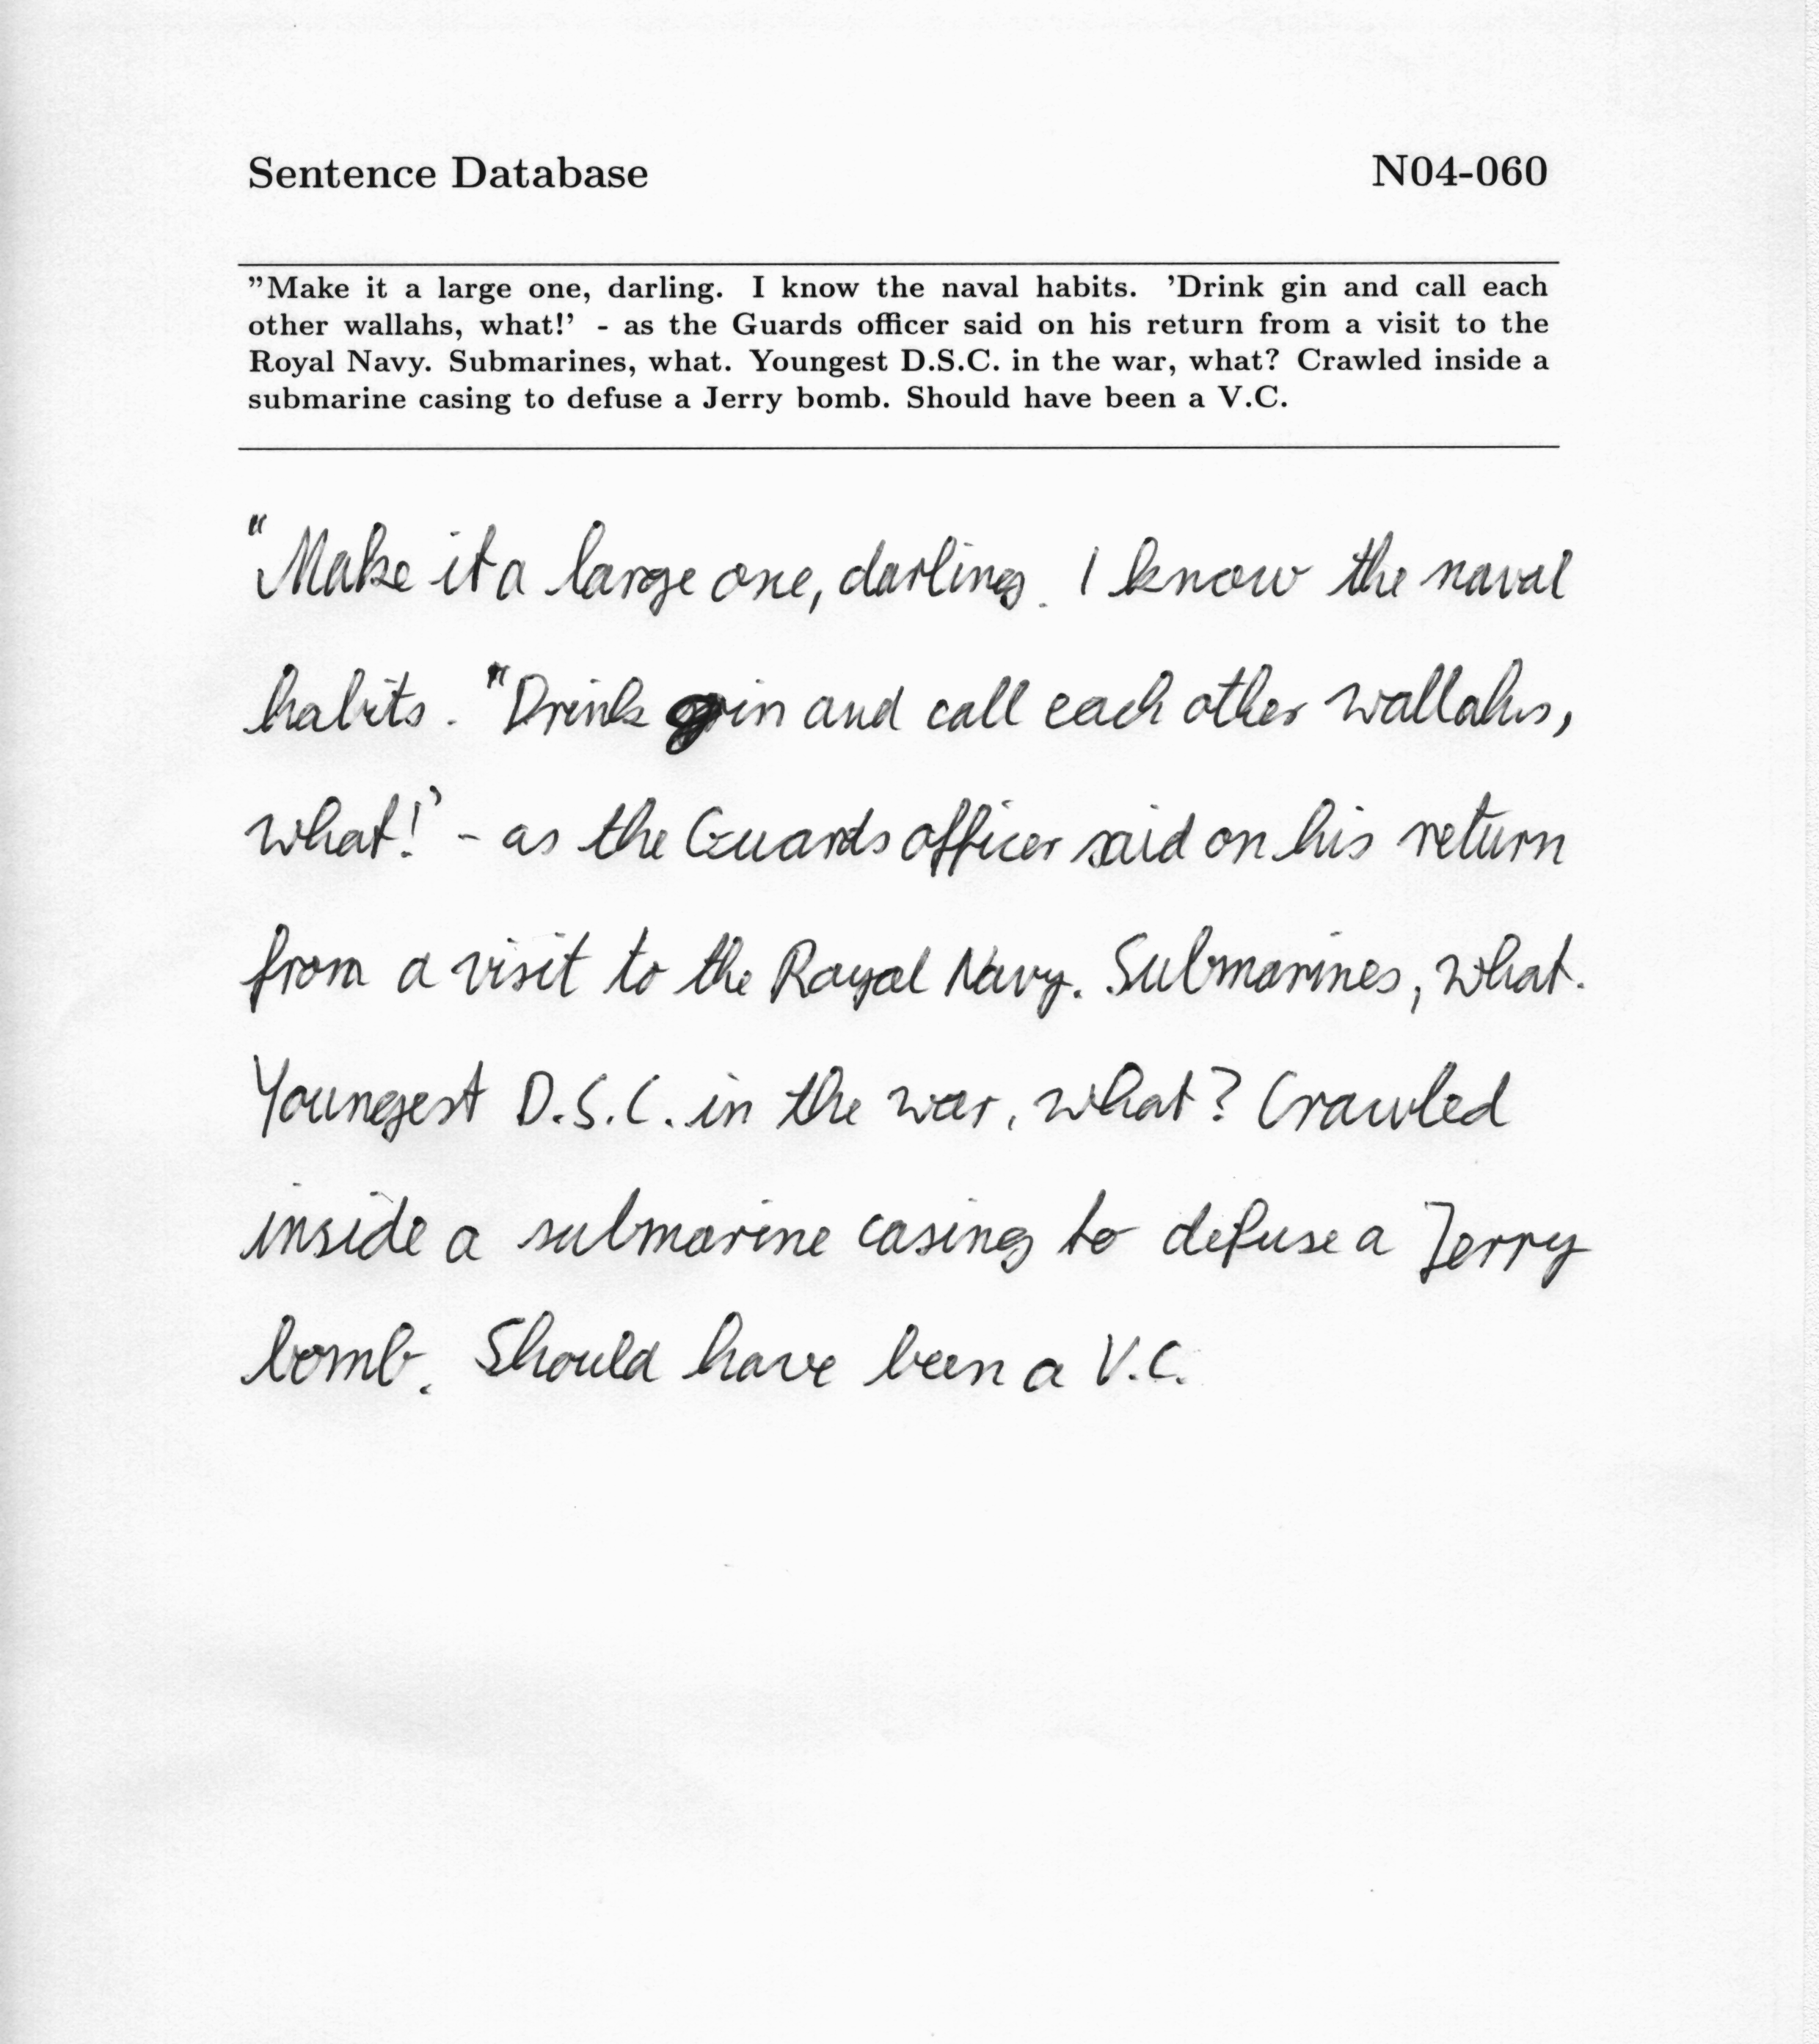 Sentence Database N04-060
"Make it a large one, darling. I know the naval habits. 'Drink gin and call each
other wallahs, what!' - as the Guards officer said on his return from a visit to the
Royal Navy. Submarines, what. Youngest D.S.C. in the war, what? Crawled inside a
submarine casing to defuse a Jerry bomb. Should have been a V.C.
"Make it a large one, darling. I know the naval
habits. "Drink gin and call each other wallahs,
what!' - as the Guards officer said on his return
from a visit to the Royal Navy. Submarines, what.
Youngest D.S.C. in the war, what? Crawled
inside a submarine casing to defuse a Jerry
bomb. Should have been a V.C.